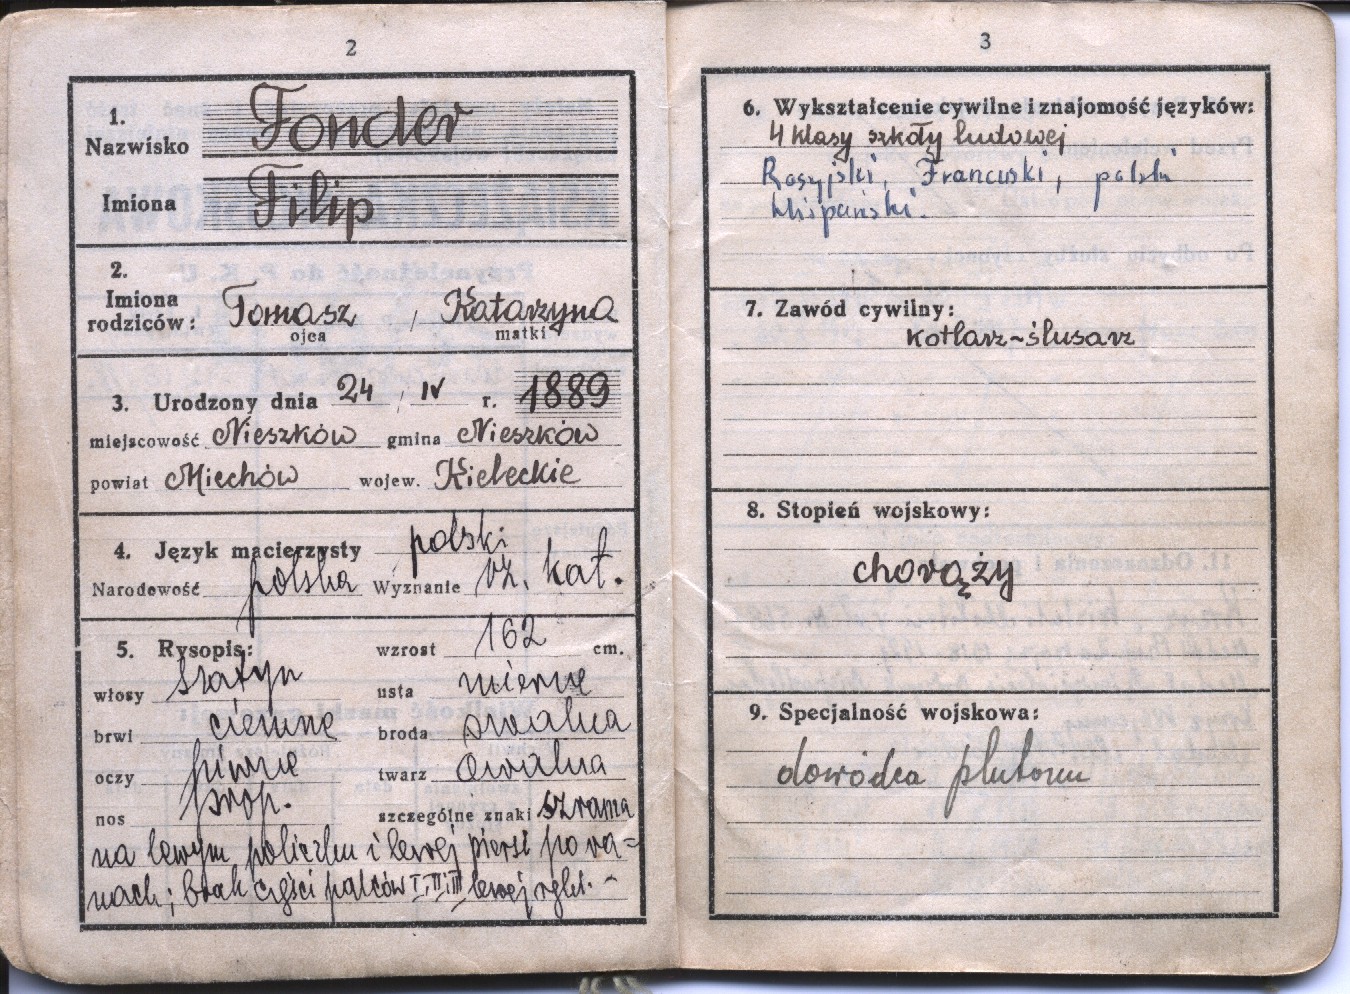 2
1.
Nazwisko Fonder
Imiona Filip
2.
Imiona
rodziców: Tomasz, Katarzyna
ojca matki
3. Urodzony dnia 24 / IV r. 1889
miejscowość Nieszków gmina Nieszków
powiat Miechów wojew. Kieleckie
4. Język macierzysty polski
Narodowość polska Wyznanie rz. kat.
5. Rysopis: wzrost 162 cm.
włosy szatyn usta mierne
brwi ciemne broda owalna
oczy piwne twarz owalna
nos prop. szczególne znaki szrama
na lewym policzku i lewej piersi po ra=
nach; brak części palców I, II i III lewej ręki. -
3
6. Wykształcenie cywilne i znajomość języków:
4 klasy szkoły ludowej
Rosyjski, Francuski, polski
Hiszpański.
7. Zawód cywilny:
kotlarz~ślusarz
8. Stopień wojskowy:
chorąży
9. Specjalność wojskowa:
dowódca plutonu